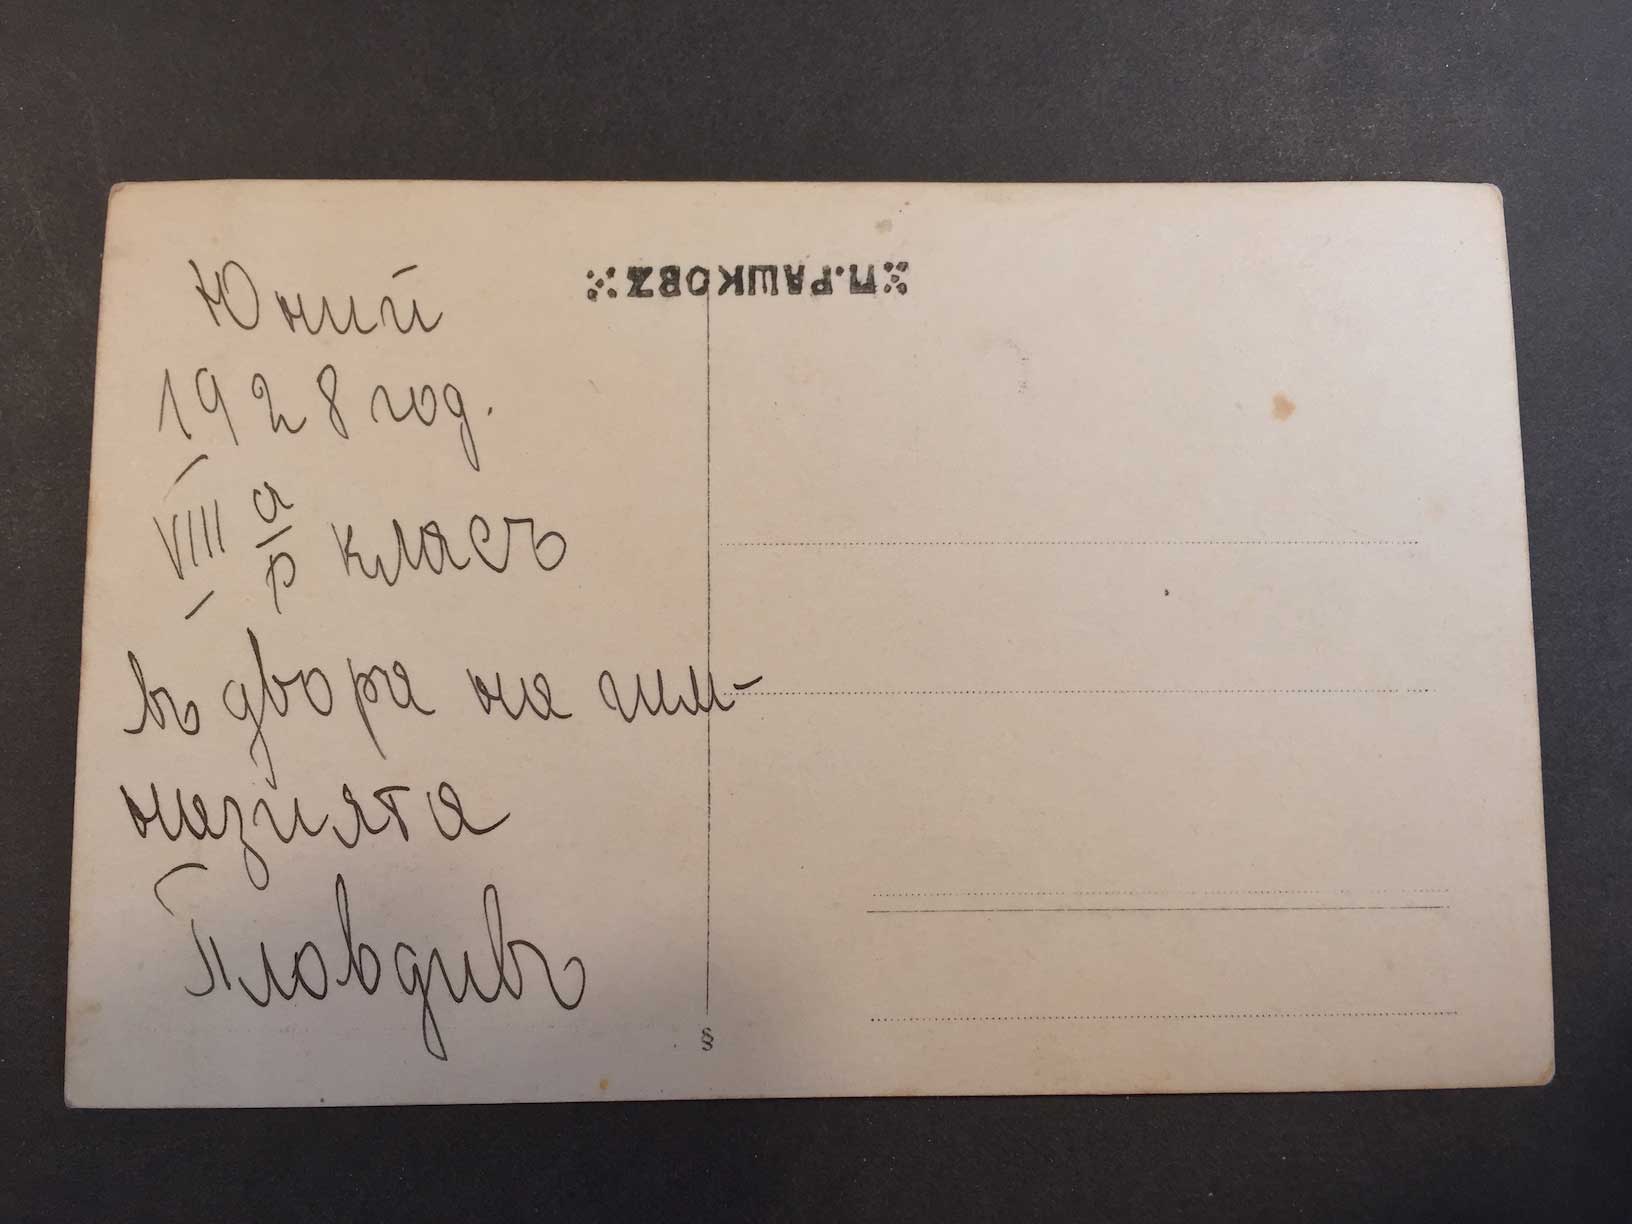 Юний
1928 год.
VIII а/р класъ
въ двора на гим-
назията
Пловдивъ
П. РАШКОВЪ
§